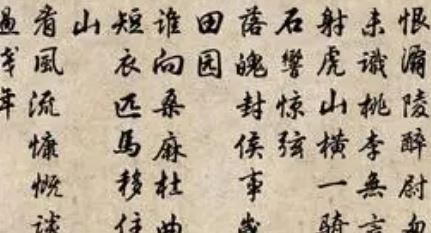 恨灞陵醉尉匆
未識桃李無言
射虎山横一騎
石響惊弦
落魄封侯事歲
田园
誰向桑麻杜曲
短衣匹馬移住
山
看風流慷慨談
過残年